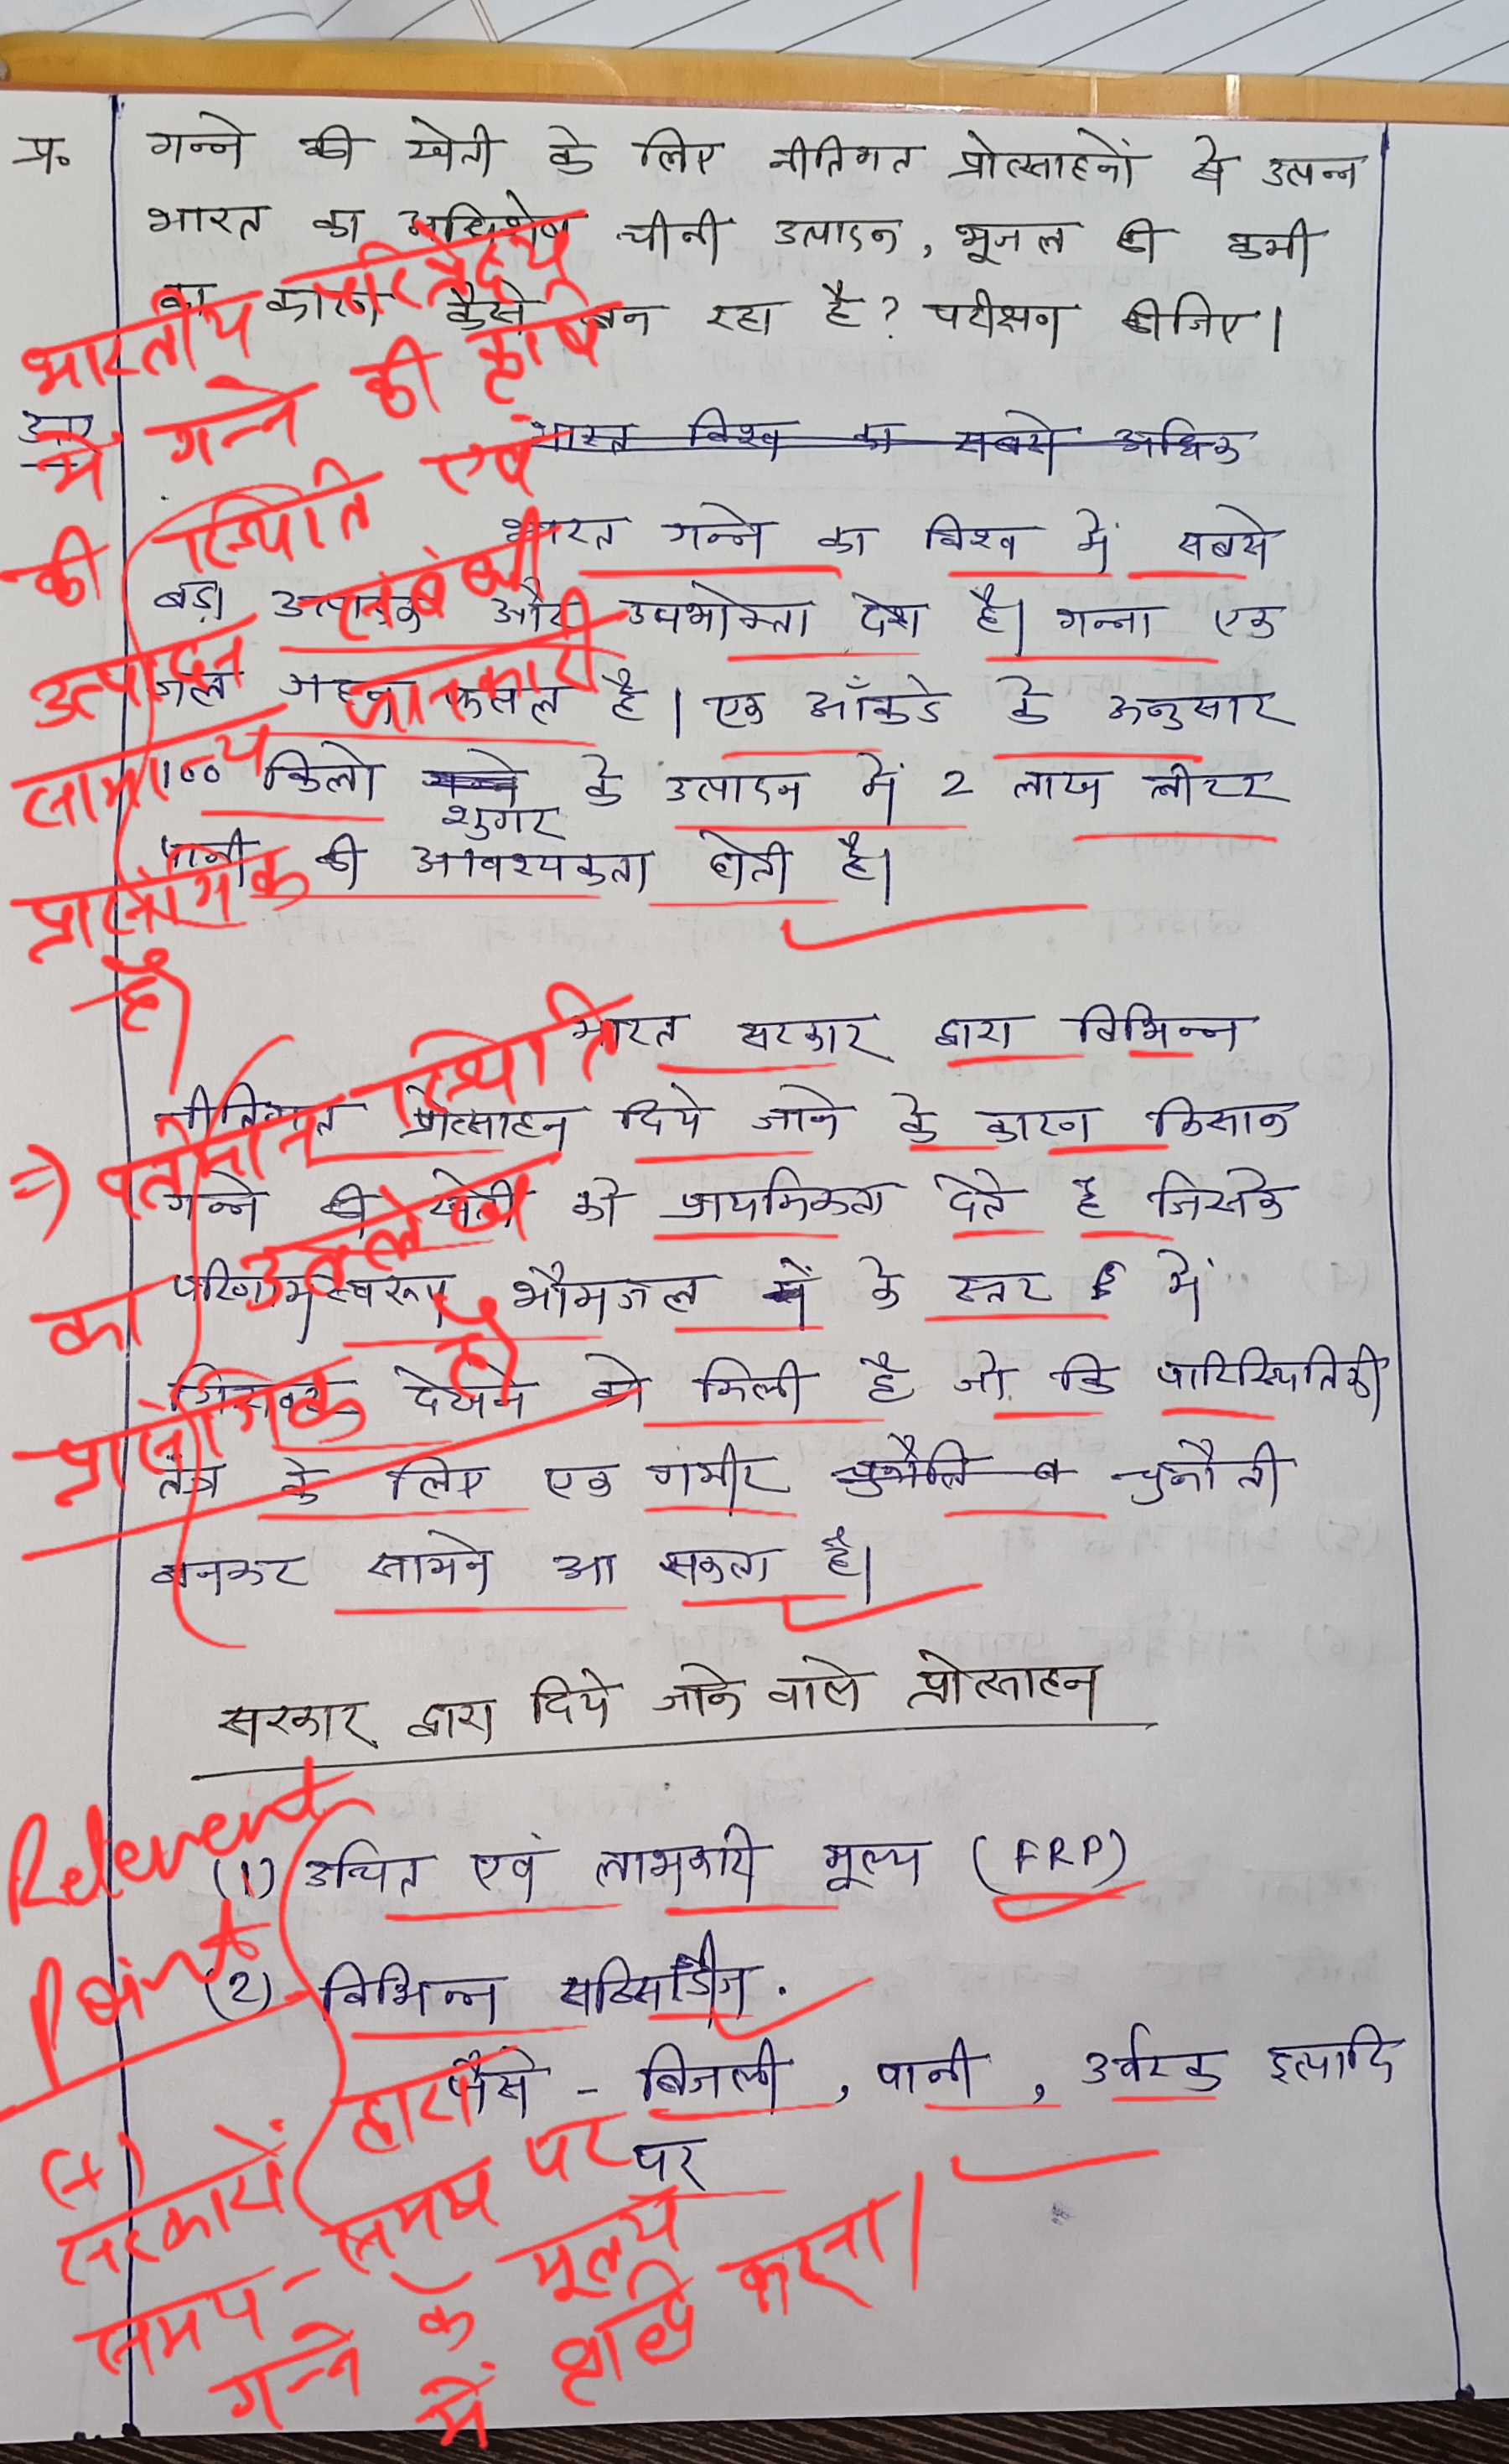 प्र० गन्ने की खेती के लिए नीतिगत प्रोत्साहनों से उत्पन्न
भारत का अधिशेष चीनी उत्पादन, भूजल की कमी
का कारण कैसे बन रहा है? परीक्षण कीजिए।
भारतीय परिप्रेक्ष्य
में गन्ने की कृषि
की स्थिति एवं
उत्पादन संबंधी
सामान्य जानकारी
प्रासंगिक
है।
उत्तर भारत विश्व का सबसे अधिक
भारत गन्ने का विश्व में सबसे
बड़ा उत्पादक और उपभोक्ता देश है। गन्ना एक
जल गहन फसल है। एक आँकडे के अनुसार
100 किलो गन्ने शुगर के उत्पादन में 2 लाख लीटर
पानी की आवश्यकता होती है।
भारत सरकार द्वारा विभिन्न
नीतिगत प्रोत्साहन दिये जाने के कारण किसान
गन्ने की खेती को प्राथमिकता देते है जिसके
परिणामस्वरूप भौमजल में के स्तर में
गिरावट देखने को मिली है जो कि पारिस्थितिकी
तंत्र के लिए एक गंभीर चुनौति ब चुनौती
बनकर सामने आ सकता है।
=) वर्तमान स्थिति
का उल्लेख
प्रासंगिक है।
सरकार द्वारा दिये जाने वाले प्रोत्साहन
Relevent
Point
(1) उचित एवं लाभकारी मूल्य (FRP)
(2) विभिन्न सब्सिडीज.
जैसे - बिजली, पानी, उर्वरक इत्यादि
पर
(+)
सरकारों द्वारा
समय-समय पर
गन्ने के मूल्य
में वृद्धि करना।